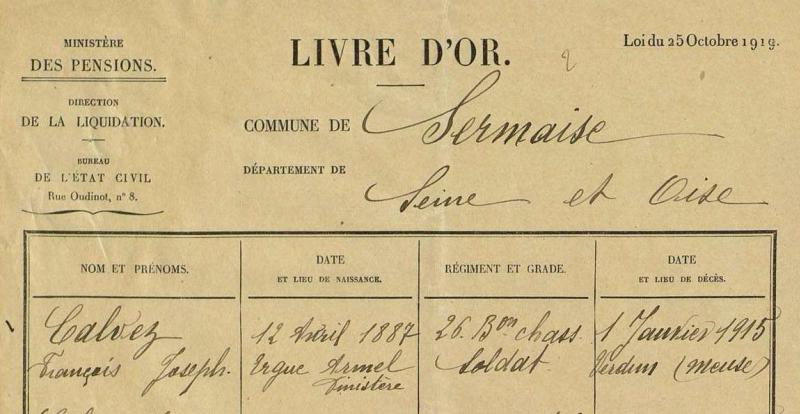 MINISTÈRE
DES PENSIONS.
DIRECTION
DE LA LIQUIDATION.
BUREAU
DE L'ÉTAT CIVIL
Rue Oudinot, n° 8.
LIVRE D'OR.
2
Loi du 25 Octobre 1919.
COMMUNE DE Sermaise
DÉPARTEMENT DE
Seine et Oise
NOM ET PRÉNOMS.
DATE
ET LIEU DE NAISSANCE.
RÉGIMENT ET GRADE.
DATE
ET LIEU DE DÉCÈS.
Calvez
François Joseph.
12 Avril 1887
Ergue Armel
Finistère
26. Bon chass.
Soldat.
1 Janvier 1915
Verdun (Meuse)